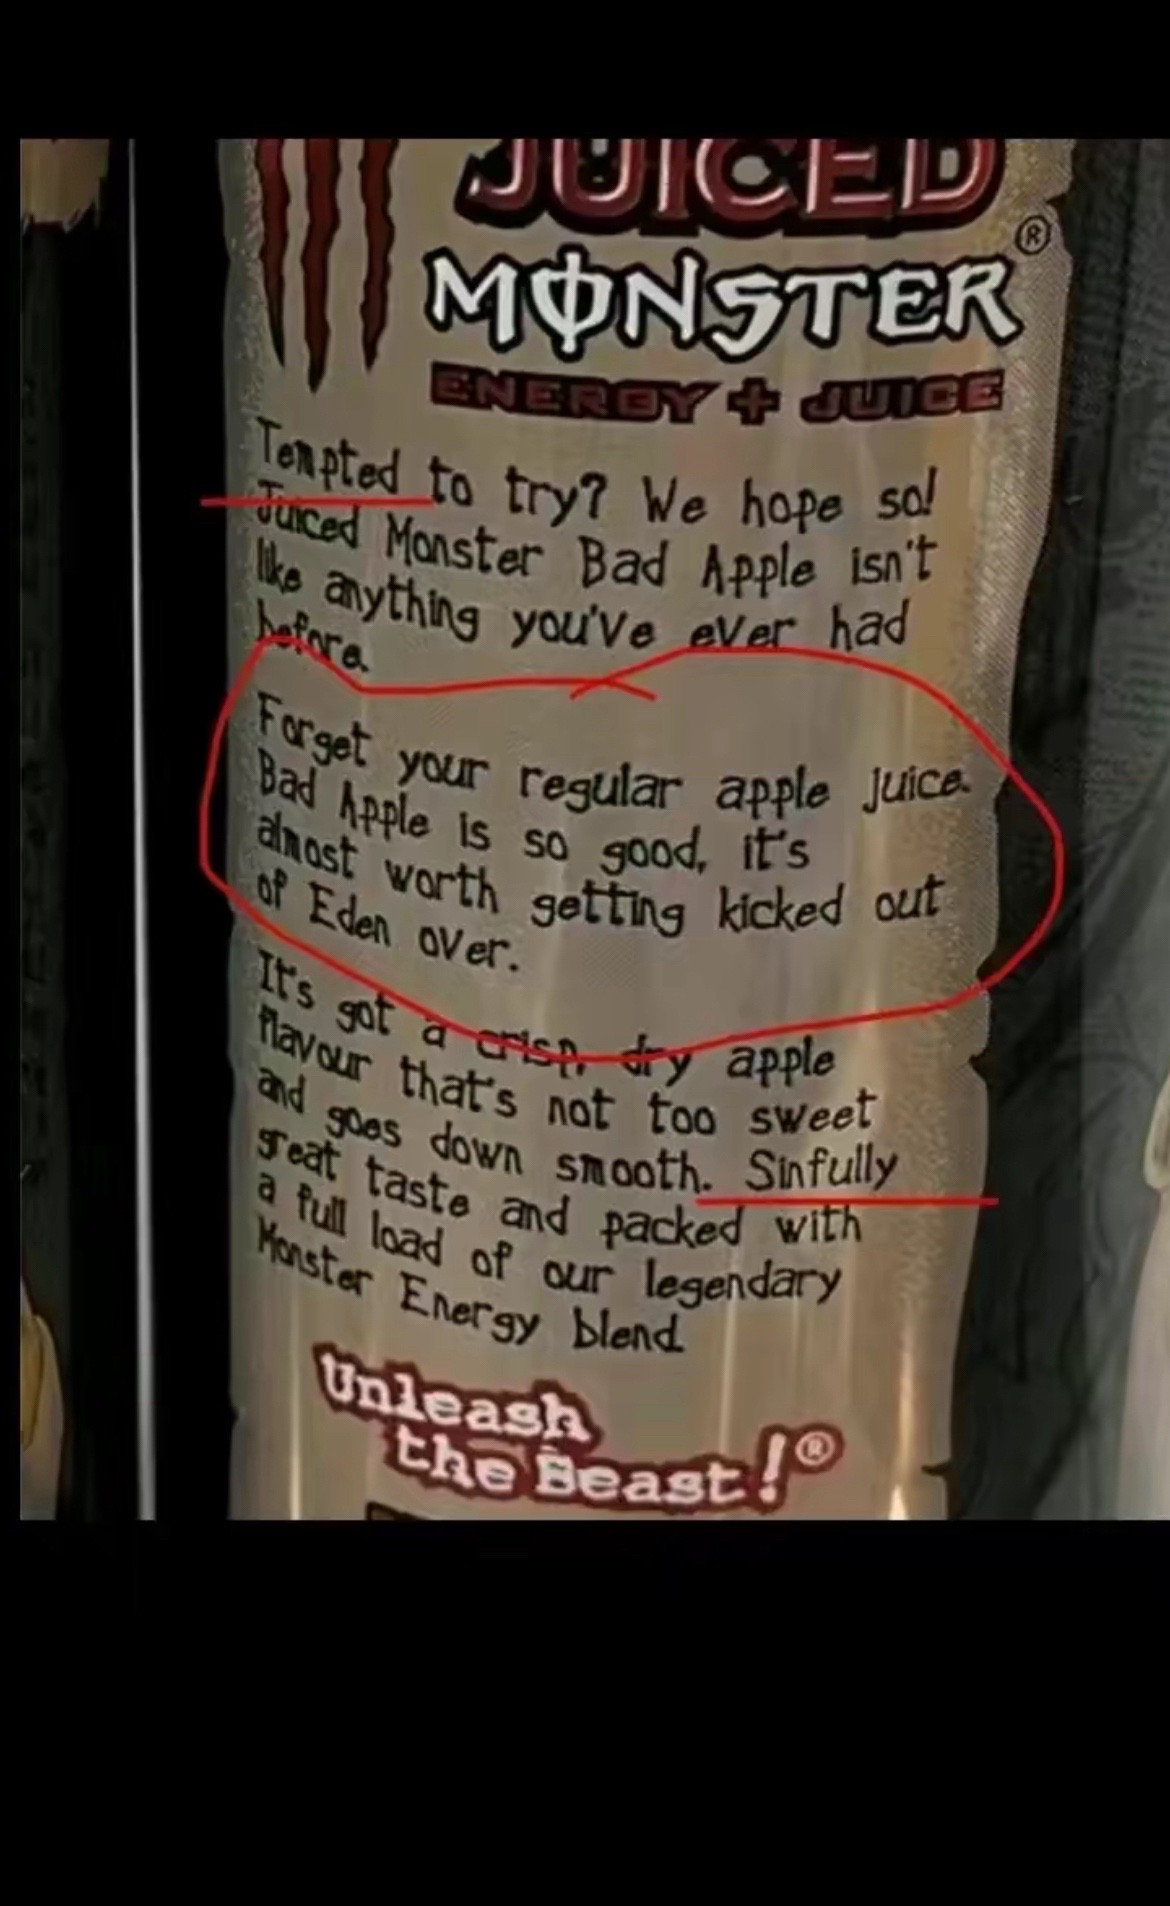 JUICED
MONSTER®
ENERGY + JUICE
Tempted to try? We hope so!
Juiced Monster Bad Apple isn't
like anything you've ever had
before.
Forget your regular apple juice.
Bad Apple is so good, it's
almost worth getting kicked out
of Eden over.
It's got a crisp, dry apple
flavour that's not too sweet
and goes down smooth. Sinfully
great taste and packed with
a full load of our legendary
Monster Energy blend.
Unleash
the Beast!®